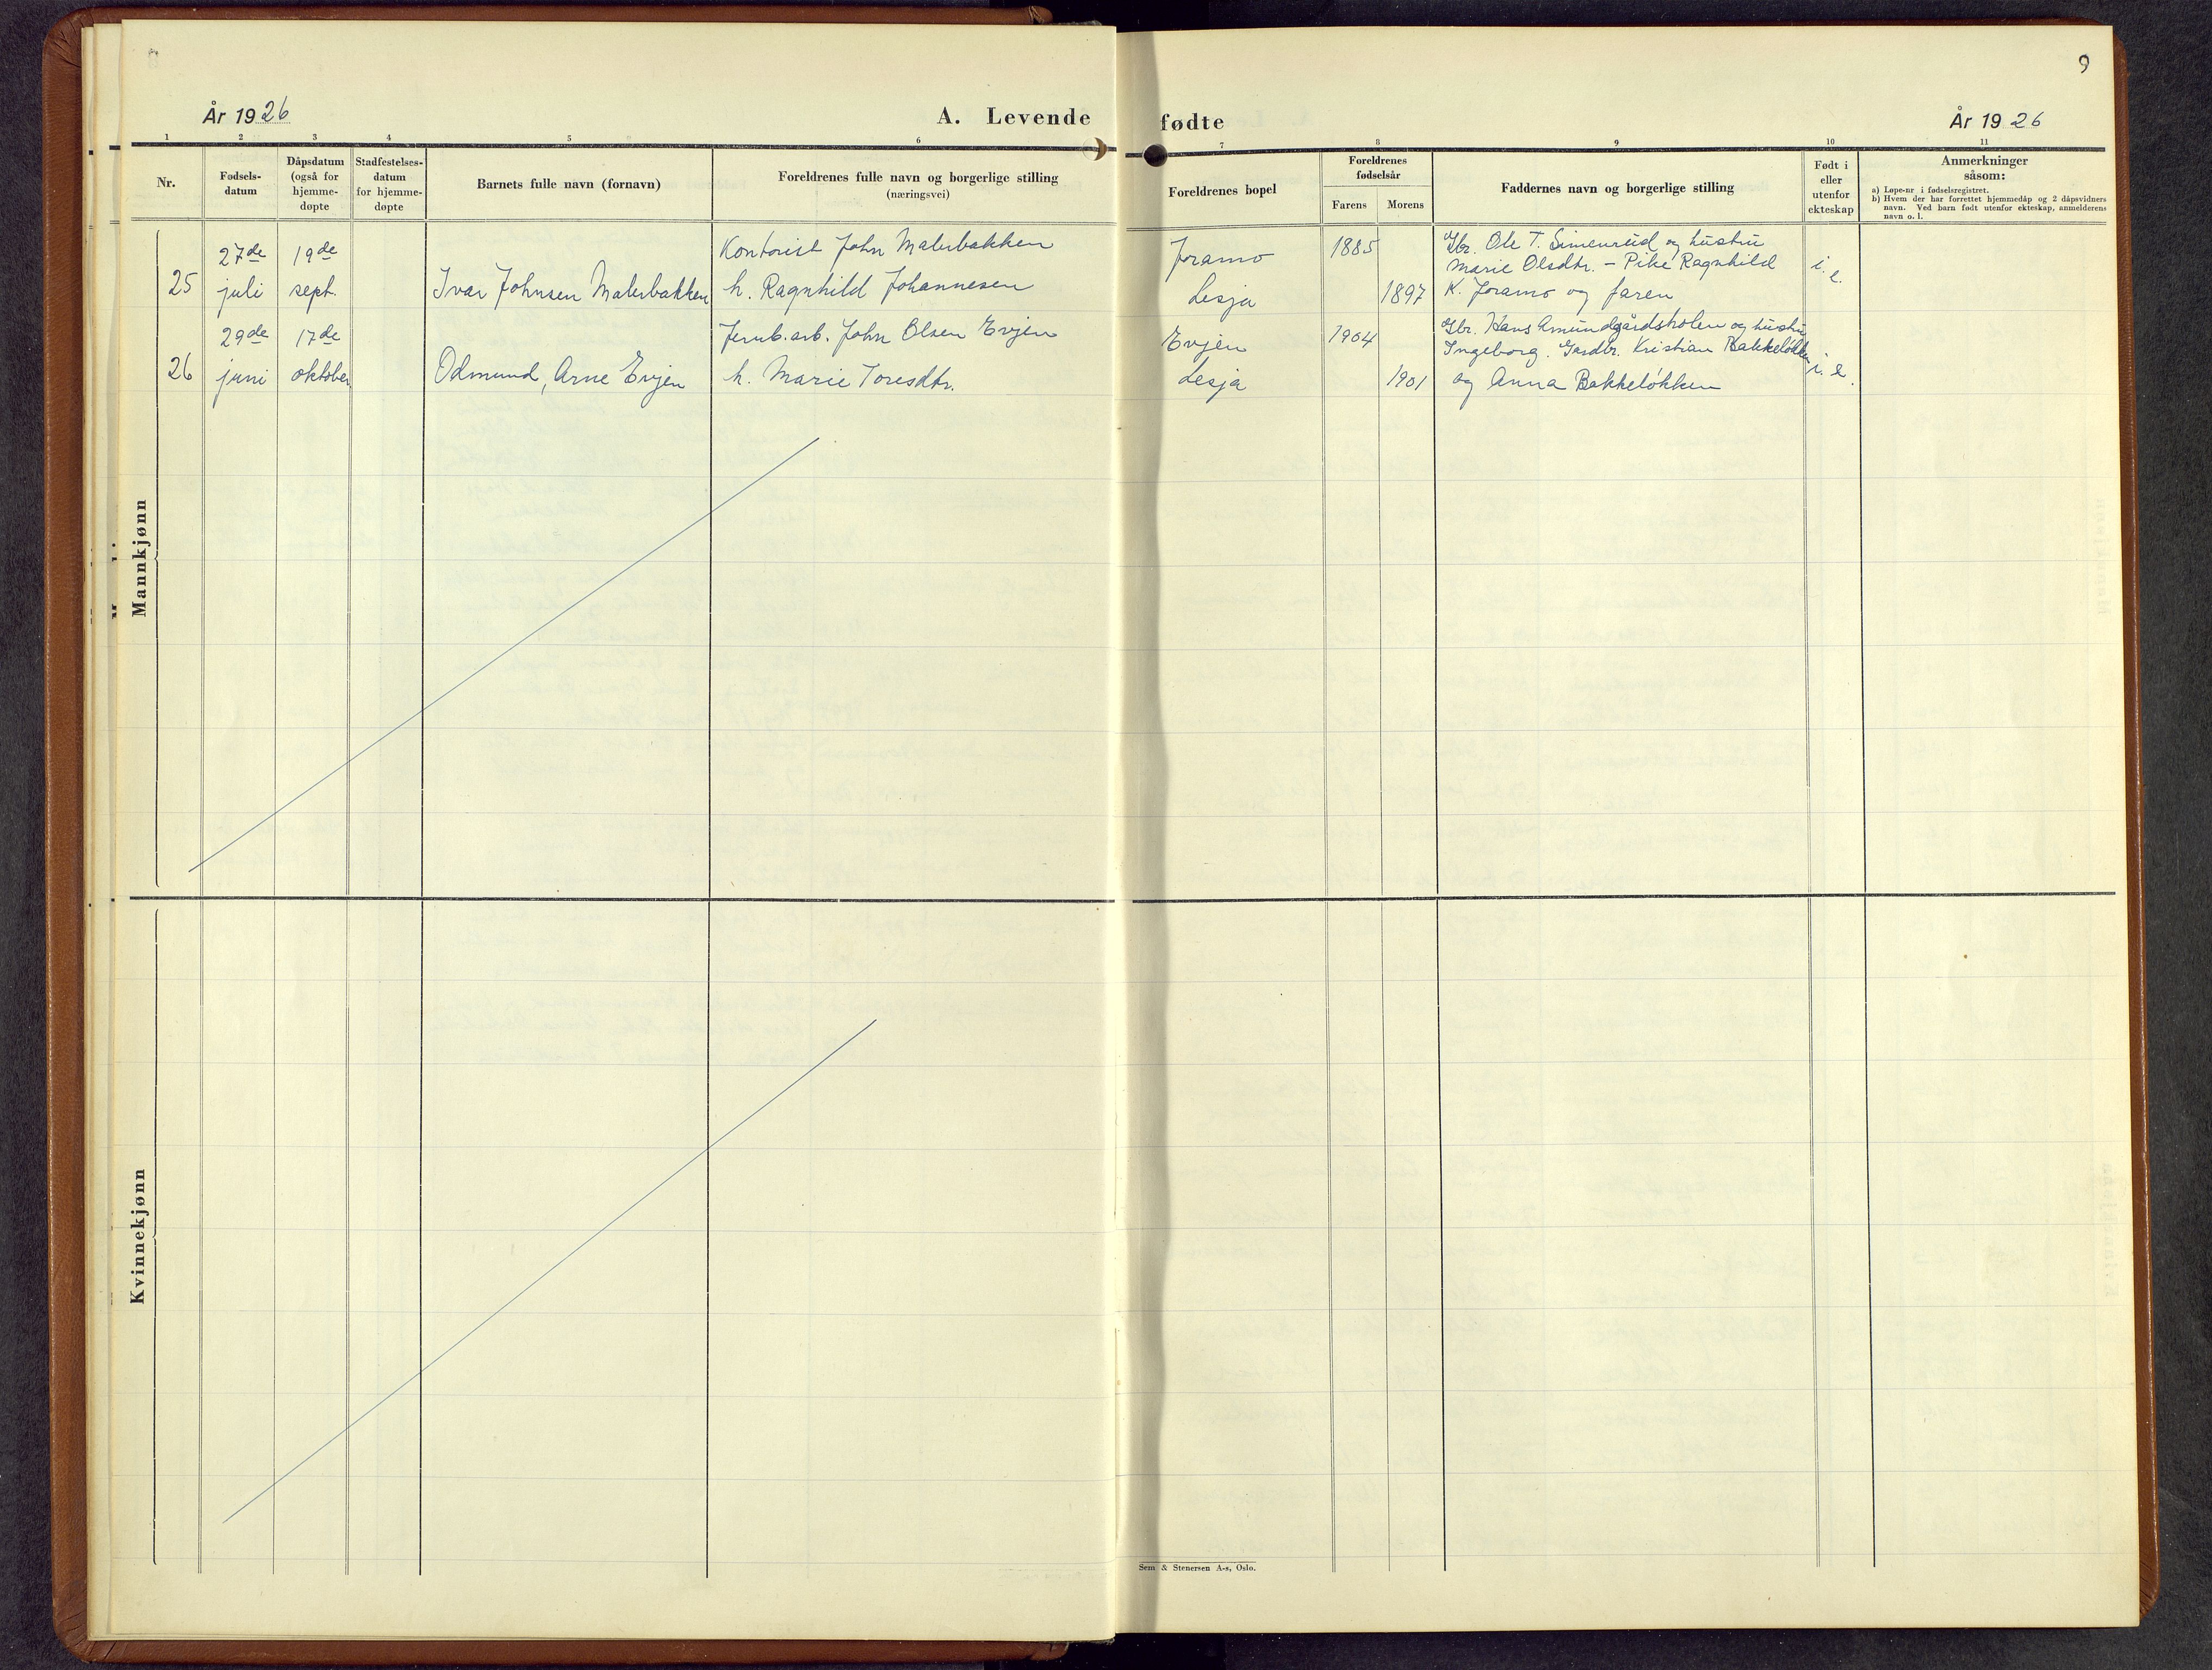 9
År 1926
A. Levende fødte
År 1926
1 2 3 4 5 6 7 8 9 10 11
Nr.
Fødsels-
datum
Dåpsdatum
(også for
hjemme-
døpte
Stadfestelses-
datum
for hjemme-
døpte
Barnets fulle navn (fornavn)
Foreldrenes fulle navn og borgerlige stilling
(næringsvei)
Foreldrenes bopel
Foreldrenes
fødselsår
Farens Morens
Faddernes navn og borgerlige stilling
Født i
eller
utenfor
ekteskap
Anmerkninger
såsom:
a) Løpe-nr i fødselsregistret.
b) Hvem der har forrettet hjemmedåp og 2 dåpsvidners
navn. Ved barn født utenfor ekteskap, anmelderens
navn o. l.
Mannkjønn
25
27de
juli
19de
sept.
Ivar Johnsen Malerbakken
Kontorist John Malerbakken
h. Ragnhild Johannesen
Joramo
Lesja
1885
1897
Gbr. Ole T. Simenrud og hustru
Marie Olsdtr. - Pike Ragnhild
K. Joramo og faren
i. e.
26
29de
juni
17de
oktober
Odmund, Arne Evjen
Jernb.arb. John Olsen Evjen
h. Marie Toresdtr.
Evjen
Lesja
1904
1901
Gbr. Hans Amundgårdsholen og hustru
Ingeborg. Gardbr. Kristian Bakkeløkken
og Anna Bakkeløkken
i. e.
Kvinnekjønn
Sem & Stenersen A-s, Oslo.